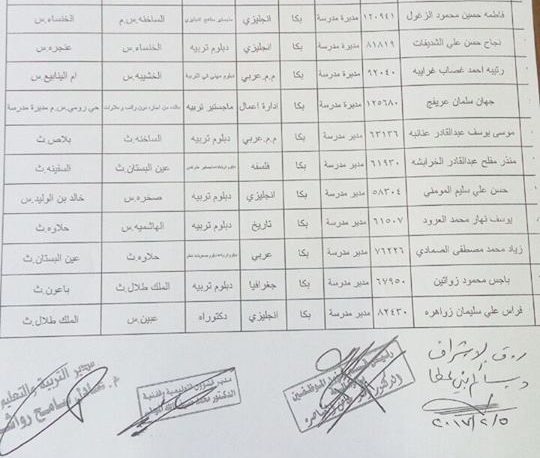 فاطمه حسين محمود الزغول ١٢٠٩٤١ مديرة مدرسة بكا انجليزي ماجستير مناهج انجليزي الساخنه س.م الخنساء.س
نجاح حسن علي الشديفات ٨١٨١٩ مديرة مدرسة بكا انجليزي دبلوم تربيه الخنساء.س عنجره.س
رتيبه احمد غصاب غرايبه ٩٢٠٤٠ مديرة مدرسة بكا م.م.عربي دبلوم مهني في التربية الخشيبه.س ام الينابيع.س
جهان سلمان عريفج ١٢٥٦٨٠ مديرة مدرسة بكا ادارة اعمال ماجستير تربيه عائده من اجازه دون راتب و علاوات حي رومي.س.م مديرة مدرسة
موسى يوسف عبدالقادر عنانبه ٦٣١٣٦ مدير مدرسة بكا م.م.عربي دبلوم تربيه الساخنه.ث بلاص.ث
منذر مفلح عبدالقادر الخرابشه ٦١٩٣٠ مدير مدرسة بكا فلسفه عين البستان.ث السفينه.ث
حسن علي سليم المومني ٥٨٣٠٤ مدير مدرسة بكا انجليزي دبلوم تربيه صخره.س خالد بن الوليد.س
يوسف نهار محمد العرود ٦١٥٠٧ مدير مدرسة بكا تاريخ دبلوم تربيه الهاشميه.س حلاوه.ث
زياد محمد مصطفى الصمادي ٧٦٢٢٦ مدير مدرسة بكا عربي حلاوه.ث عين البستان.ث
باجس محمود زواتين ٦٧٩٥٠ مدير مدرسة بكا جغرافيا دبلوم تربيه الملك طلال.ث باعون.ث
فراس علي سليمان زواهره ٨٢٤٣٠ مدير مدرسة بكا انجليزي دكتوراه عبين.س الملك طلال.ث
مدير التربية والتعليم
مدير الشؤون التعليمية والفنية
الدكتور محمد
رئيس
٢٠١٧/٢/٥